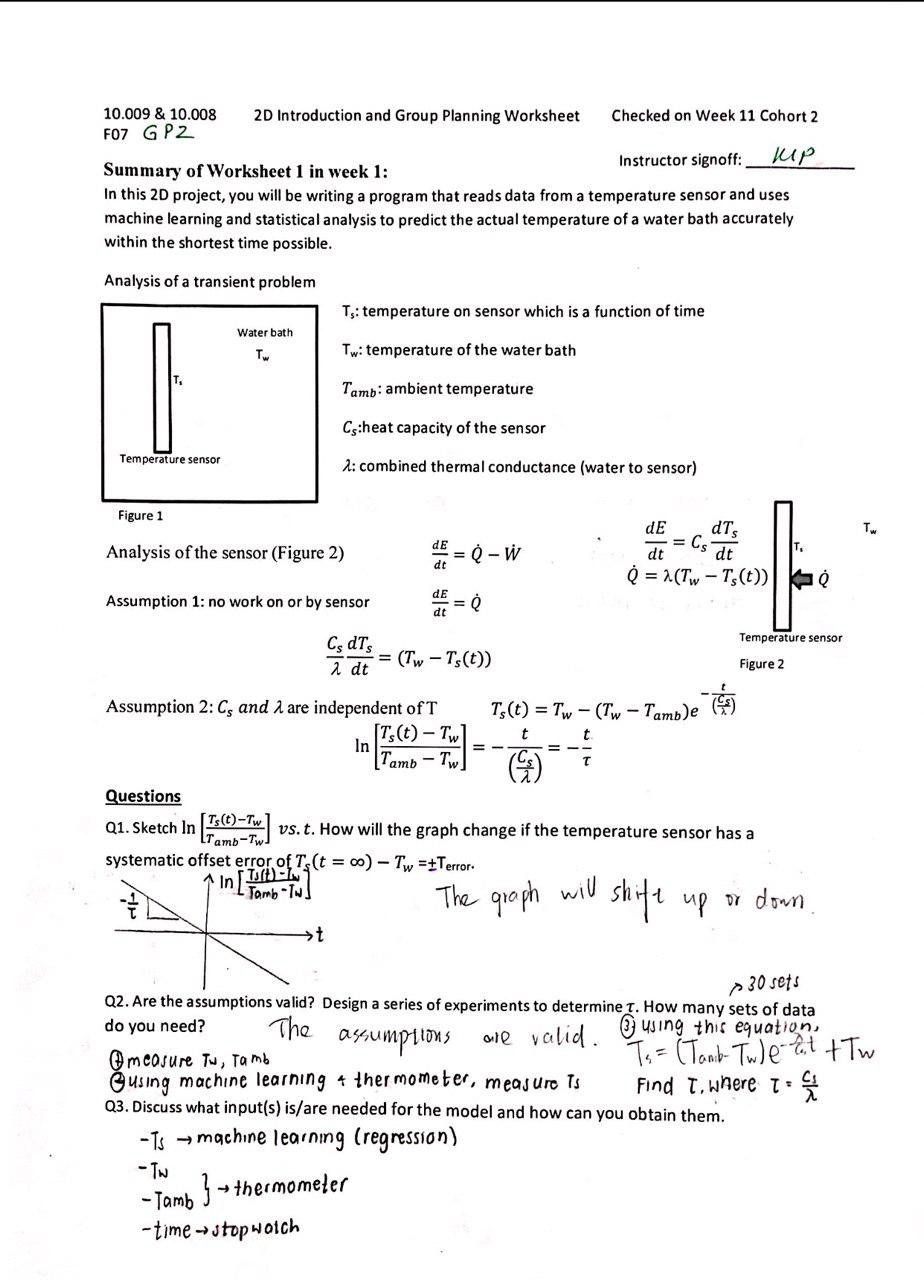 10.009 & 10.008 2D Introduction and Group Planning Worksheet Checked on Week 11 Cohort 2
F07 GP2
Instructor signoff:
Summary of Worksheet 1 in week 1:
In this 2D project, you will be writing a program that reads data from a temperature sensor and uses
machine learning and statistical analysis to predict the actual temperature of a water bath accurately
within the shortest time possible.
Analysis of a transient problem
Water bath
T_w
T_s
Temperature sensor
Figure 1
T_s: temperature on sensor which is a function of time
T_w: temperature of the water bath
T_amb: ambient temperature
C_s:heat capacity of the sensor
λ: combined thermal conductance (water to sensor)
Analysis of the sensor (Figure 2) dE/dt = Q̇ − Ẇ
Assumption 1: no work on or by sensor dE/dt = Q̇
dE/dt = C_s dT_s/dt
Q̇ = λ(T_w − T_s(t))
T_s
T_w
Q̇
Temperature sensor
Figure 2
C_s/λ dT_s/dt = (T_w − T_s(t))
Assumption 2: C_s and λ are independent of T T_s(t) = T_w − (T_w − T_amb)e^(−t/(C_s/λ))
ln [(T_s(t) − T_w)/(T_amb − T_w)] = −t/(C_s/λ) = −t/τ
Questions
Q1. Sketch ln [(T_s(t)−T_w)/(T_amb−T_w)] vs. t. How will the graph change if the temperature sensor has a
systematic offset error of T_s(t = ∞) − T_w =±T_error.
ln [(Ts(t)-Tw)/(Tamb-Tw)]
-1/τ
t
The graph will shift up or down.
→ 30 sets
Q2. Are the assumptions valid? Design a series of experiments to determine τ. How many sets of data
do you need? The assumptions are valid.
① measure Tw, Tamb
② using machine learning + thermometer, measure Ts
③ using this equation,
Ts = (Tamb-Tw)e + Tw
Find τ, where τ = Cs/λ
Q3. Discuss what input(s) is/are needed for the model and how can you obtain them.
-Ts → machine learning (regression)
-Tw
-Tamb } → thermometer
-time → stopwatch